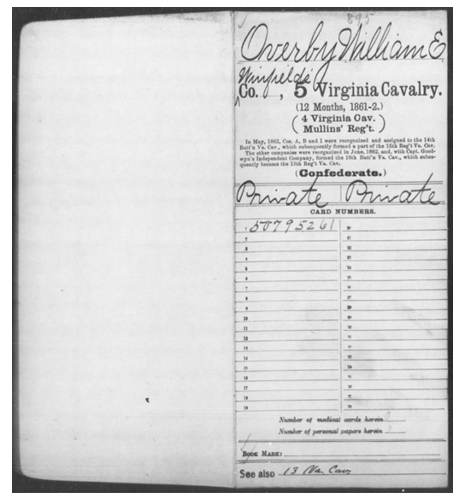 895
Overby William E
Winfield's
Co. , 5 Virginia Cavalry.
(12 Months, 1861-2.)
( 4 Virginia Cav.
Mullins' Reg't. )
In May, 1862, Cos. A, B and I were reorganized and assigned to the 14th
Batt'n Va. Cav., which subsequently formed a part of the 15th Reg't Va. Cav.
The other companies were reorganized in June, 1862, and, with Capt. Goodwyn's Independent Company, formed the 16th Batt'n Va. Cav., which subsequently became the 13th Reg't Va. Cav.
(Confederate.)
Private Private
CARD NUMBERS.
1 50795261 20
2
3
4
5
6
7
8
9
10
11
12
13
14
15
16
17
18
19
Number of medical cards herein
Number of personal papers herein
BOOK MARK:
See also 13 Va. Cav